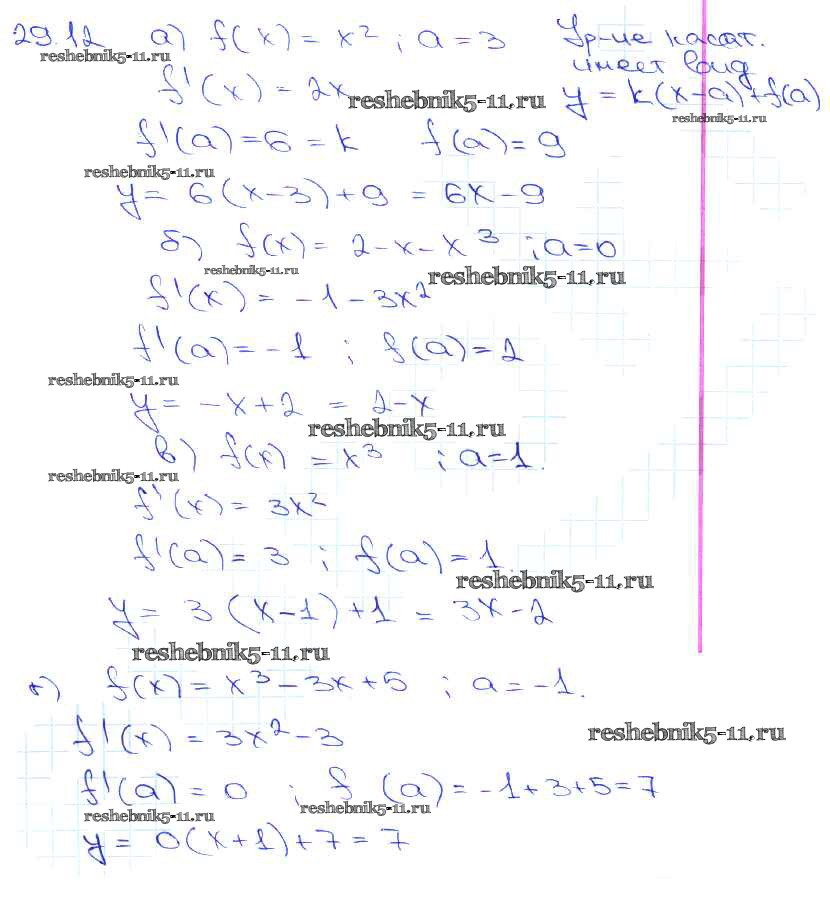 29.12 а) f(x) = x² ; a = 3 Ур-ие касат.
reshebnik5-11.ru имеет вид
f'(x) = 2x y = k(x-a)+f(a)
reshebnik5-11.ru
reshebnik5-11.ru
f'(a) = 6 = k f(a) = 9
reshebnik5-11.ru
y = 6(x-3)+9 = 6x-9
б) f(x) = 2-x-x³ ; a=0
reshebnik5-11.ru reshebnik5-11.ru
f'(x) = -1-3x²
f'(a) = -1 ; f(a) = 2
reshebnik5-11.ru
y = -x+2 = 2-x
reshebnik5-11.ru
в) f(x) = x³ ; a=1.
reshebnik5-11.ru
f'(x) = 3x²
f'(a) = 3 ; f(a) = 1
reshebnik5-11.ru
y = 3(x-1)+1 = 3x-2
reshebnik5-11.ru
г) f(x) = x³-3x+5 ; a = -1.
reshebnik5-11.ru
f'(x) = 3x²-3
f'(a) = 0 ; f(a) = -1+3+5=7
reshebnik5-11.ru reshebnik5-11.ru
y = 0(x+1)+7=7